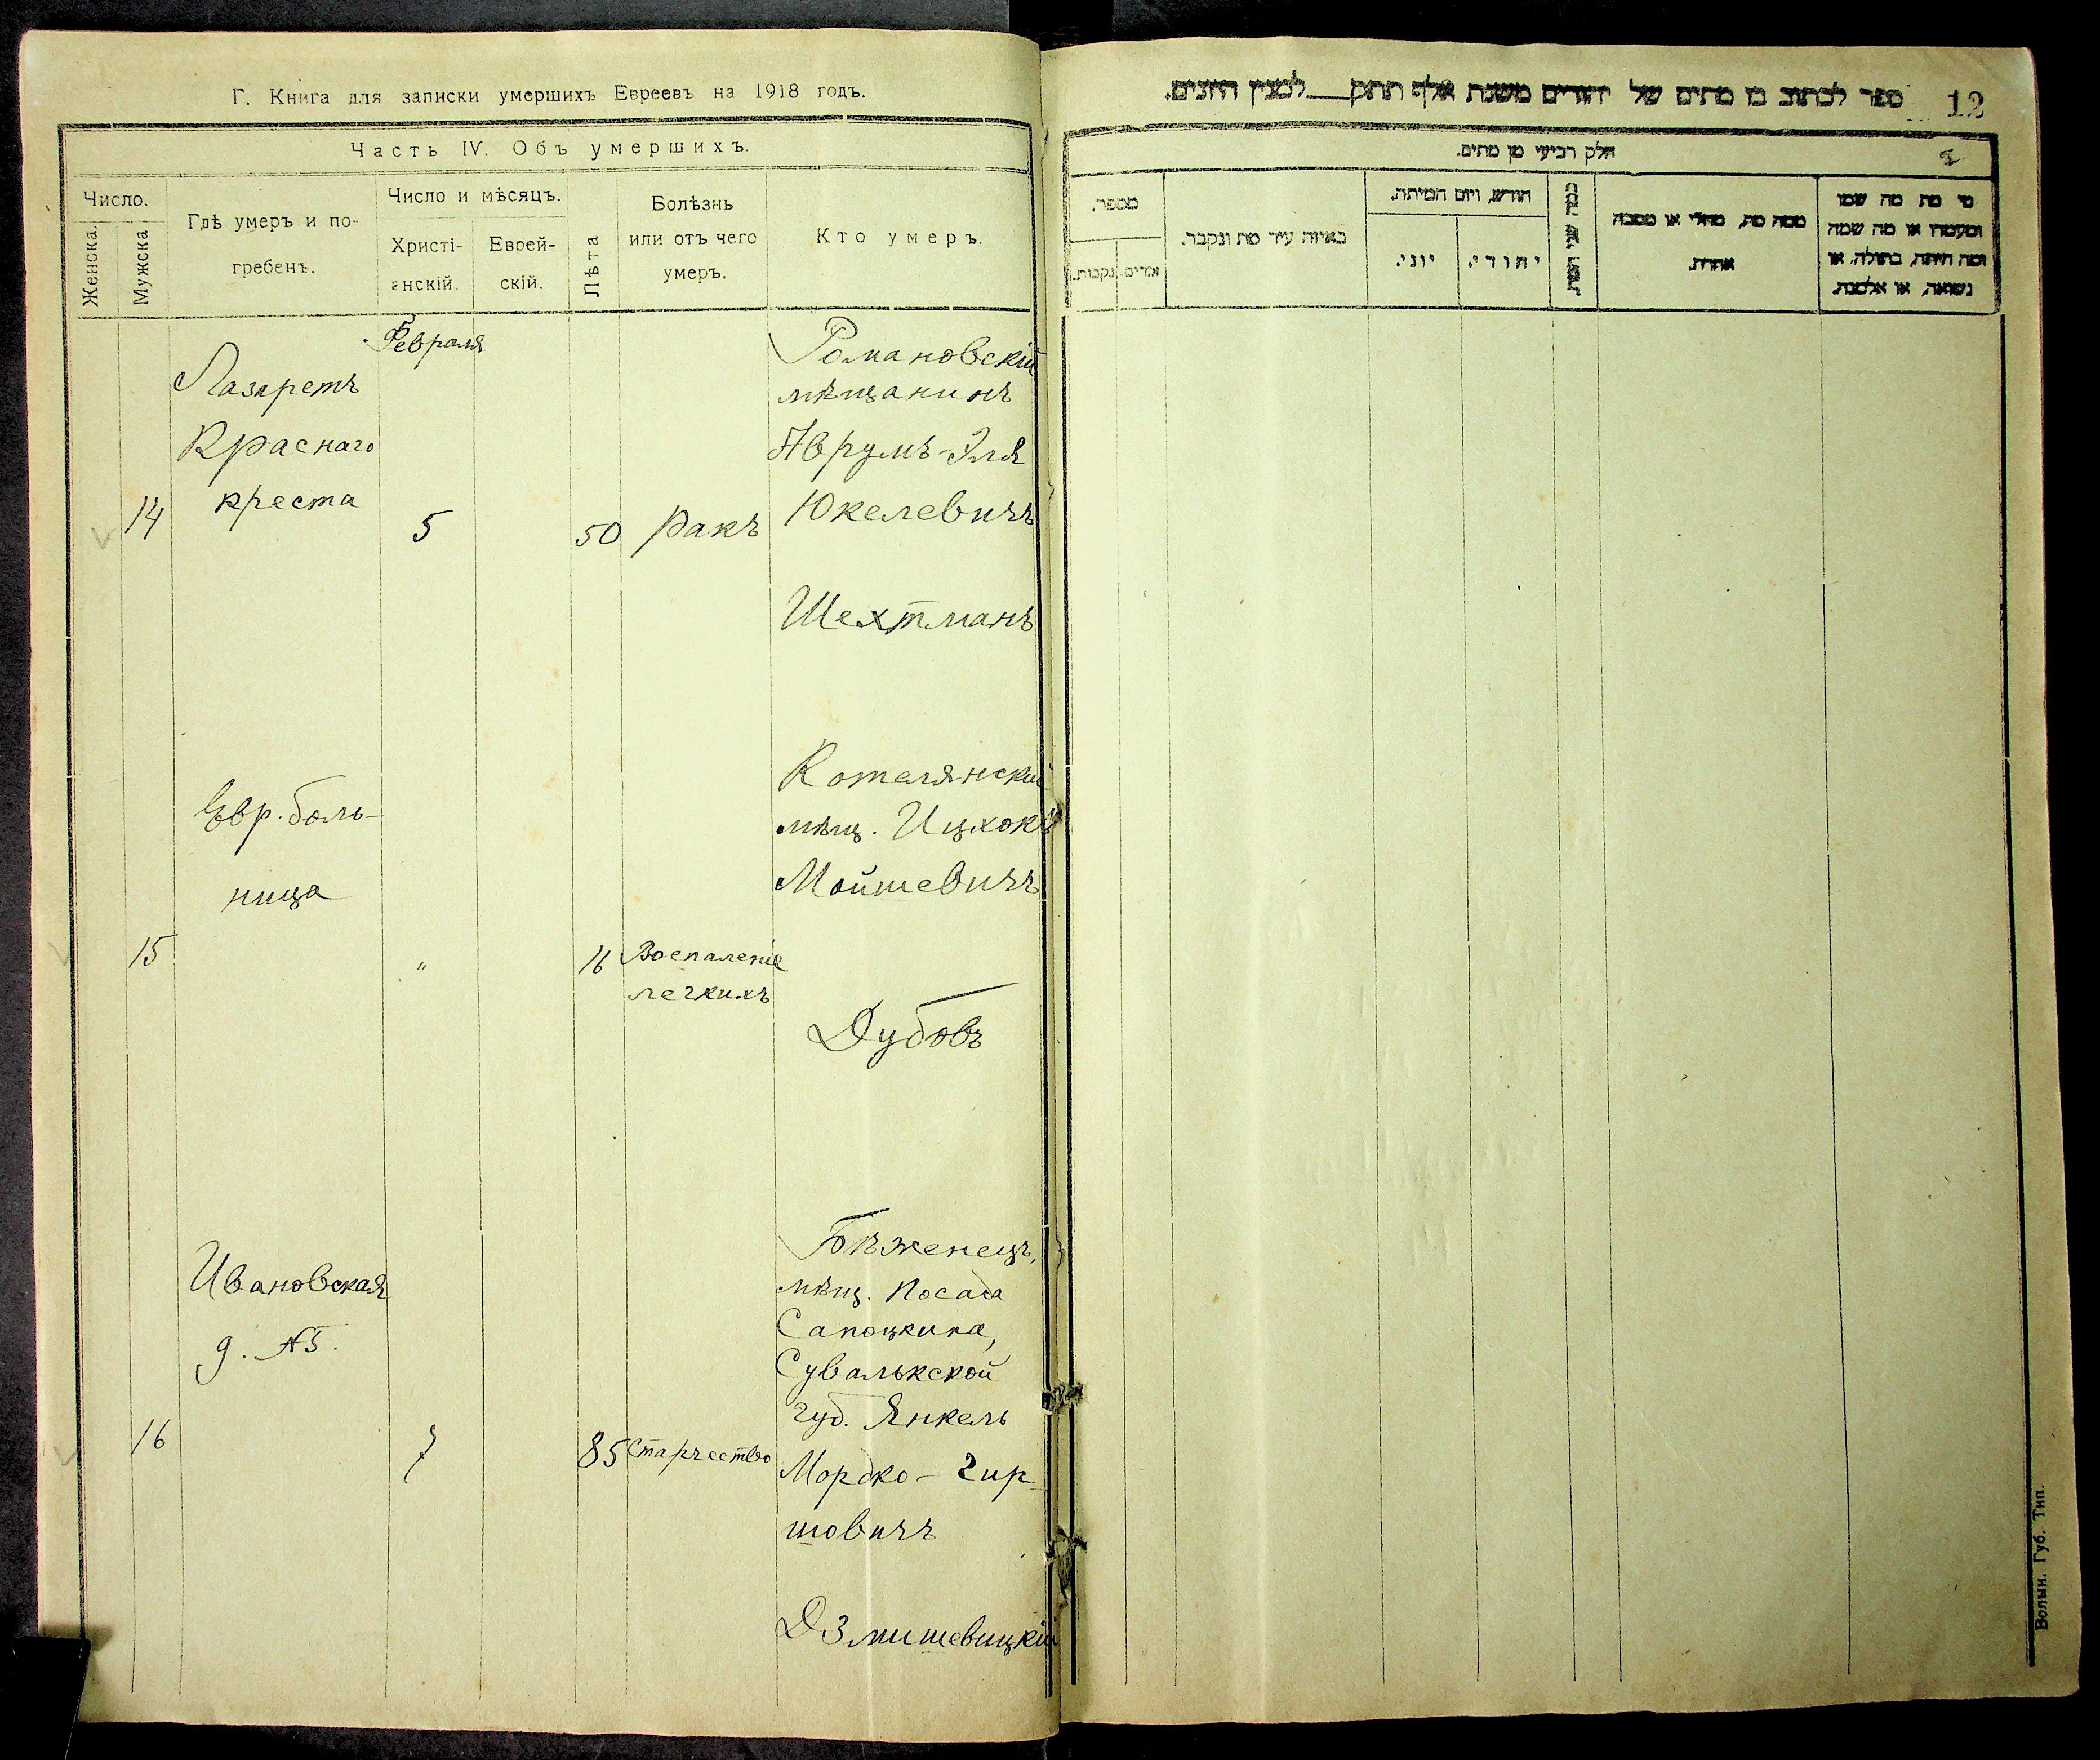 Г. Книга для записки умершихъ Евреевъ на 1918 годъ.
Часть IV. Объ умершихъ.
Число.
Женска.
Мужска
Гдѣ умеръ и по-
гребенъ.
Число и мѣсяцъ.
Христі-
анскій.
Еврей-
скій.
Лѣта
Болѣзнь
или отъ чего
умеръ.
Кто умеръ.
Февраля
14
Лазаретъ
Краснаго
креста
5
50
Ракъ
Романовскій
мѣщанинъ
Аврумъ-Эля
Юкелевичъ
Шехтманъ
15
Евр. боль-
ница
"
16
Воспаленіе
легкихъ
Котелянскій
мѣщ. Ицхокъ
Мойшевичъ
Дубовъ
16
Ивановская
д. №5.
7
85
Старчество
Бѣженецъ,
мѣщ. посада
Сапоцкина,
Сувалькской
губ. Янкель
Мордко-Гир-
шовичъ
Дзмишевицкій
12
ספר לכתוב בו מתים של יהודים משנת אלף תתק למנין היונים.
חלק רביעי מן מתים.
מספר.
נקבות.
באיזה עיר מת ונקבר.
חודש, ויום המיתה.
יוני.
יהודי.
ממה מת, מחלי או מסבה
אחרת.
מי מת מה שמו
ומעמדו או מה שמה
ומה היתה, בתולה, או
נשואה, או אלמנה.
Волын. Губ. Тип.